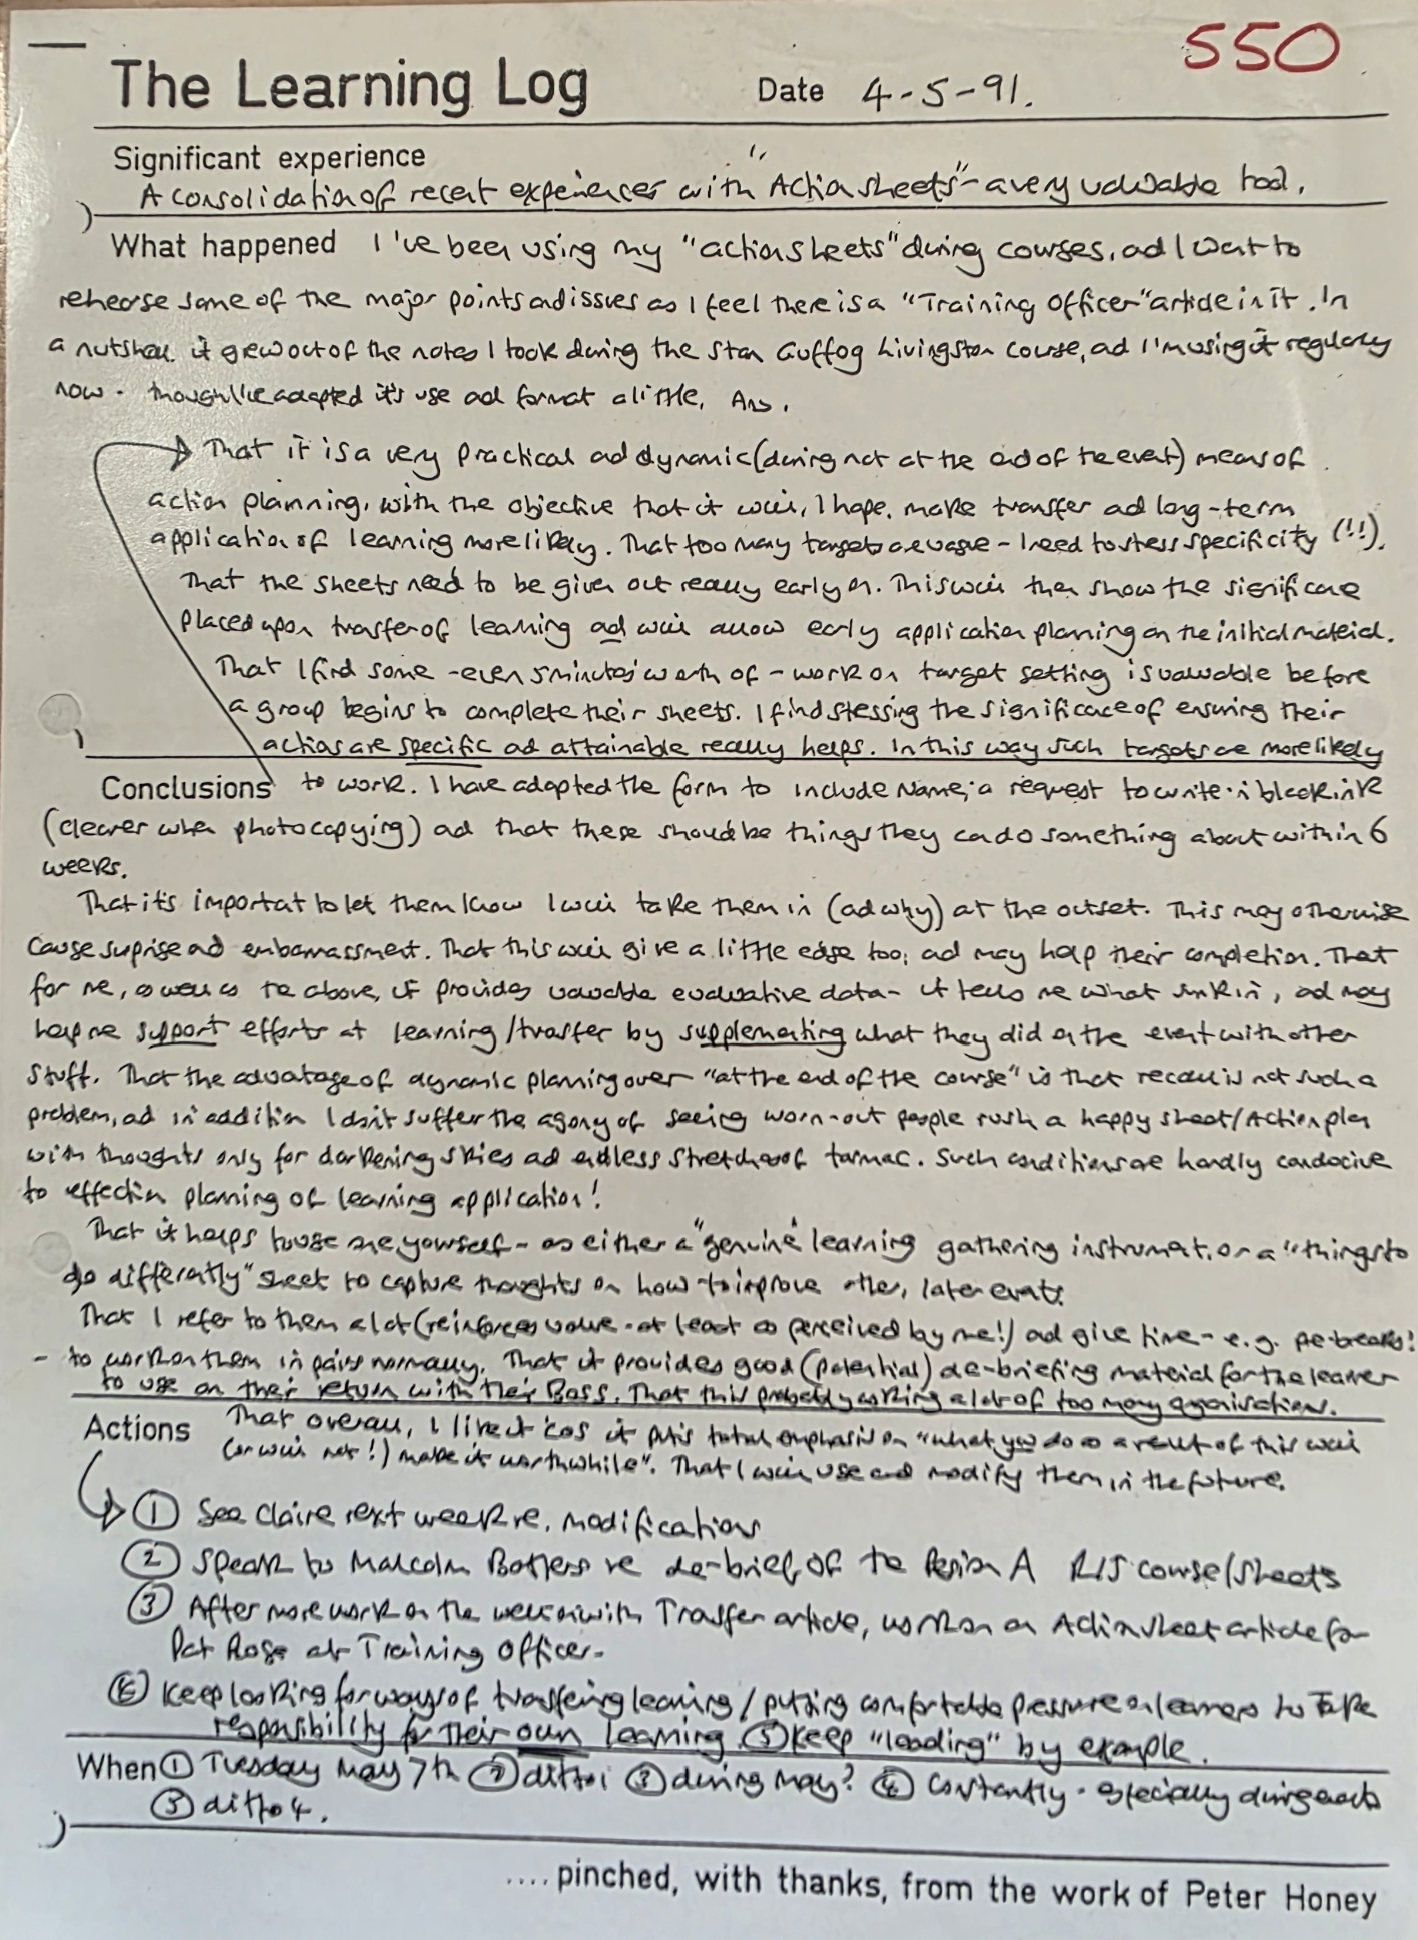 550
The Learning Log Date 4-5-91.
Significant experience
A consolidation of recent experiences with "Action sheets" - a very valuable tool.
What happened I've been using my "action sheets" during courses, ad I want to
rehearse some of the major points and issues as I feel there is a "Training Officer" article in it. In
a nutshell it grew out of the notes I took during the Stan Guffog Livingston course, ad I'm using it regularly
now - though I've adapted it's use ad format a little. Ans.
That it is a very practical ad dynamic (during not at the end of the event) means of
action planning, with the objective that it will, I hope, make transfer ad long-term
application of learning more likely. That too many targets are vague - I need to stress specificity (!!).
That the sheets need to be given out really early on. This will then show the significance
placed upon transfer of learning ad will allow early application planning on the initial material.
That I find some - even 5 minutes' worth of - work on target setting is valuable before
a group begins to complete their sheets. I find stressing the significance of ensuring their
actions are specific ad attainable really helps. In this way such targets are more likely
Conclusions to work. I have adapted the form to include Name; a request to write in black ink
(clearer when photocopying) ad that these should be things they can do something about within 6
weeks.
That it's important to let them know I will take them in (ad why) at the outset. This may otherwise
cause suprise ad embarrassment. That this will give a little edge too, ad may help their completion. That
for me, as well as the above, it provides valuable evaluative data - it tells me what sunk in, ad may
help me support efforts at learning/transfer by supplementing what they did on the event with other
stuff. That the advantage of dynamic planning over "at the end of the course" is that recall is not such a
problem, ad in addition I don't suffer the agony of seeing worn-out people rush a happy sheet/Action plan
with thoughts only for darkening skies ad endless stretches of tarmac. Such conditions are hardly conducive
to effective planning of learning application!
That it helps to use one yourself - as either a "genuine" learning gathering instrument, or a "things to
do differently" sheet to capture thoughts on how to improve other, later events.
That I refer to them a lot (reinforces value - at least as perceived by me!) ad give time - e.g. pre-breaks!
- to work on them in pairs normally. That it provides good (potential) de-briefing material for the learner
to use on their return with their Boss. That this probably asking a lot of too many organisations.
Actions That overall, I like it 'cos it puts total emphasis on "what you do as a result of this will
(or will not!) make it worthwhile". That I will use and modify them in the future.
① See Claire next week re. modifications
② Speak to Malcolm re de-brief of the A RIS course/sheets
③ After more work on the with Transfer article, work on an Action sheet article for
Pat Rose at Training Officer.
④ Keep looking for ways of transfering learning / putting comfortable pressure on learners to take
responsibility for their own learning. ⑤ Keep "leading" by example.
When ① Tuesday May 7th ② ditto 1 ③ during May? ④ Constantly - especially during events
⑤ ditto 4.
.... pinched, with thanks, from the work of Peter Honey